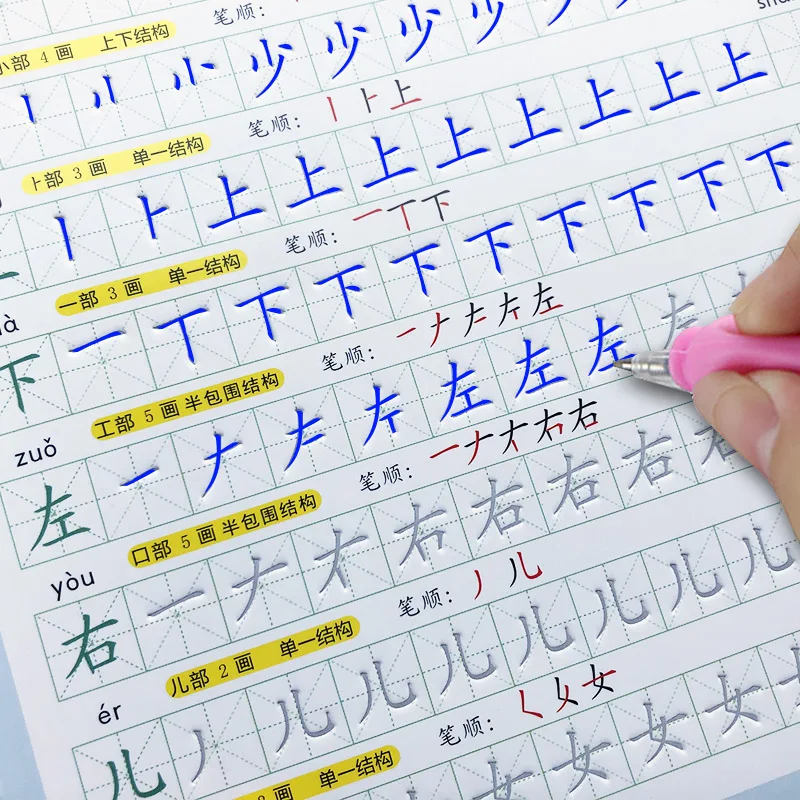 笔顺:
小部 4 画 上下结构
亅 小 小 少 少 少 少
笔顺: 丨 卜 上
卜部 3 画 单一结构
丨 卜 上 上 上 上 上 上 上 上
笔顺: 一 丅 下
一部 3 画 单一结构
下 一 丅 下 下 下 下 下 下 下 下
笔顺: 一 ナ 𠂇 左 左
工部 5 画 半包围结构
zuǒ
左 一 ナ 左 左 左 左 左
笔顺: 一 ナ 右 右
口部 5 画 半包围结构
yòu
右 一 ナ 右 右 右 右 右
笔顺: 丿 儿
儿部 2 画 单一结构
ér
儿 丿 儿 儿 儿 儿 儿 儿 儿
笔顺: 𡿨 女 女
3 画 单一结构
女 女 女 女